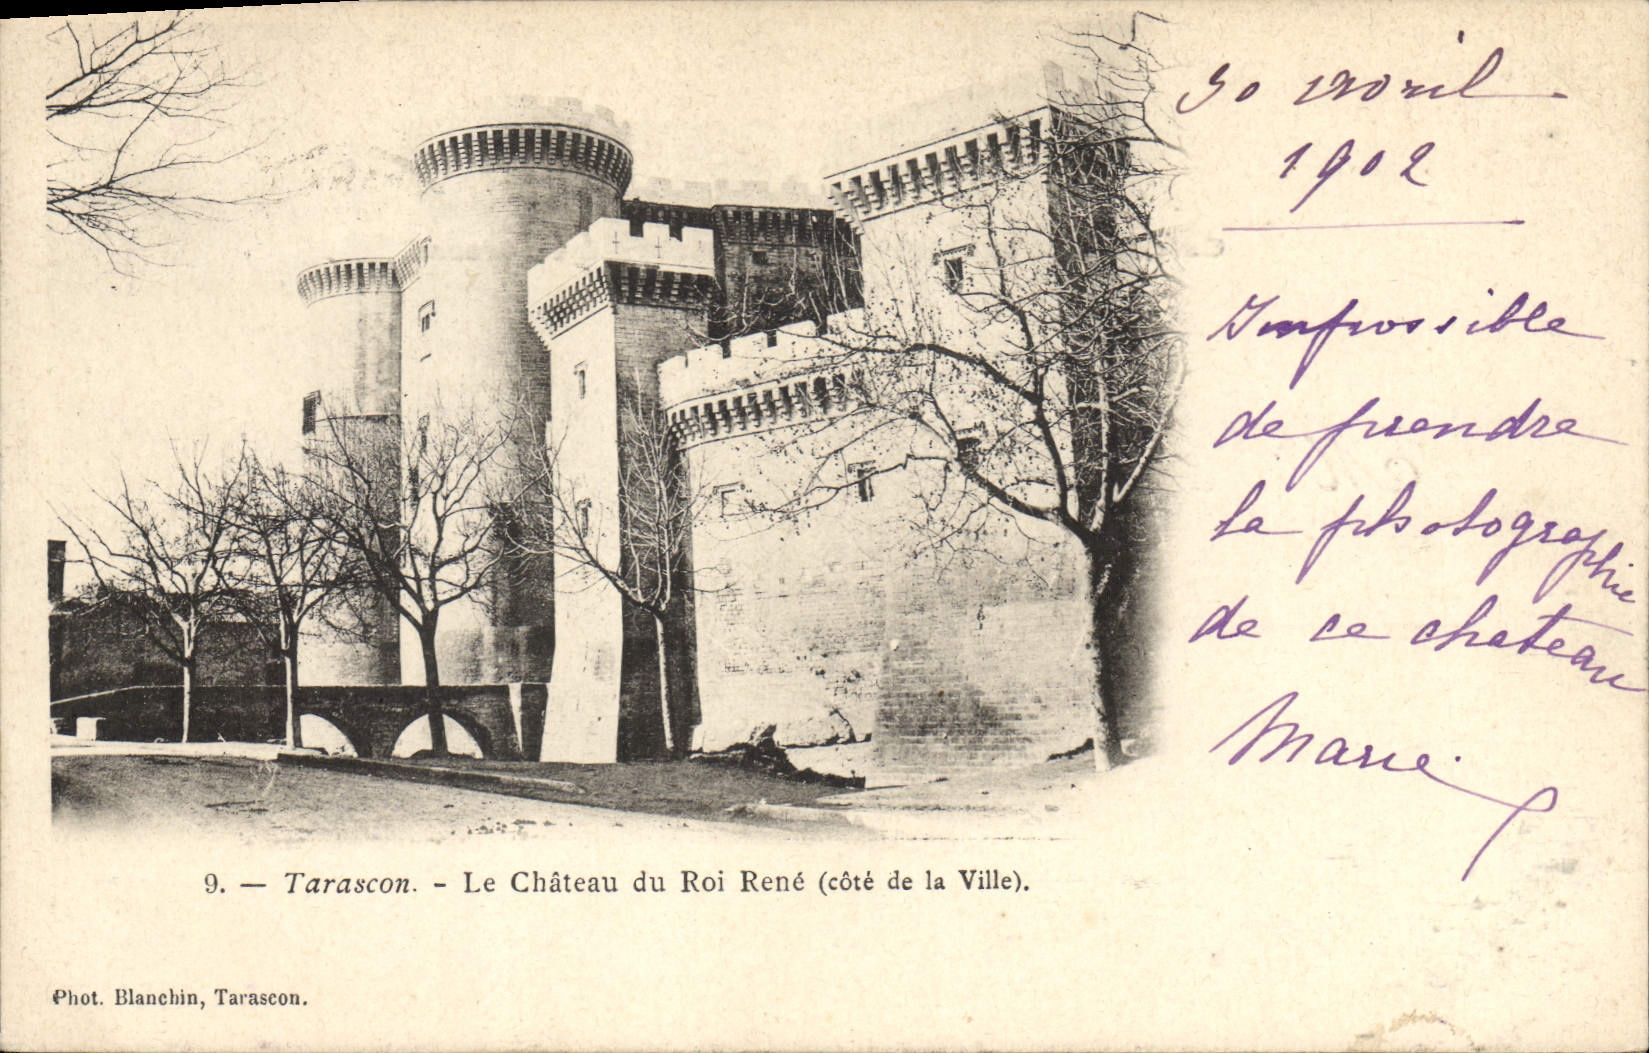 30 Avril
1902
Impossible
de prendre
la photographie
de ce chateau
Marie
9. — Tarascon. - Le Château du Roi René (côté de la Ville).
Phot. Blanchin, Tarascon.